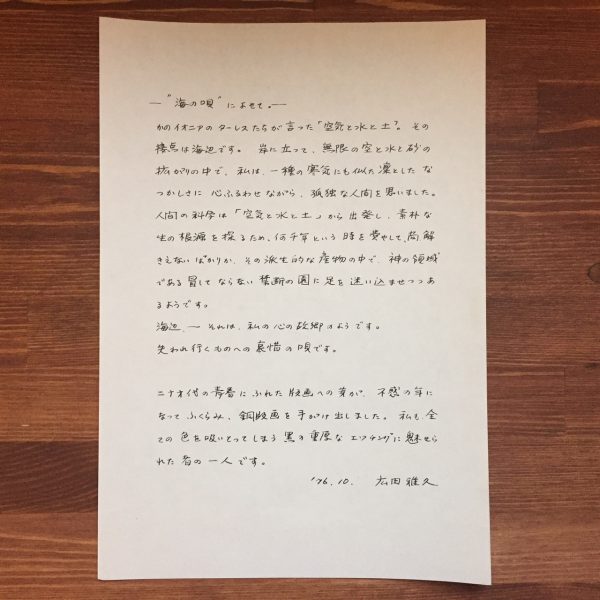 ―"海の唄"によせて。―
かのイオニアのターレスたちが言った「空気と水と土」。その
接点は海辺です。 岸に立って、無限の空と水と砂の
拡がりの中で、私は、一種の寒気にも似た凜としたな
つかしさに心ふるわせながら、孤独な人間を思いました。
人間の科学は「空気と水と土」から出発し、素朴な
生の根源を探るため、何千年という時を費やして、尚、解
きえないばかりか、その派生的な産物の中で、神の領域
である冒してならない禁断の園に足を迷い込ませつつあ
るようです。
海辺、― それは、私の心の故郷のようです。
失われ行くものへの哀惜の唄です。
二十才代の青春にふれた版画への芽が、不惑の年に
なってふくらみ、銅版画を手がけ出しました。私も、全
ての色を吸いとってしまう黒の重厚なエッチングに魅せら
れた者の一人です。
'76.10. 広田雅久